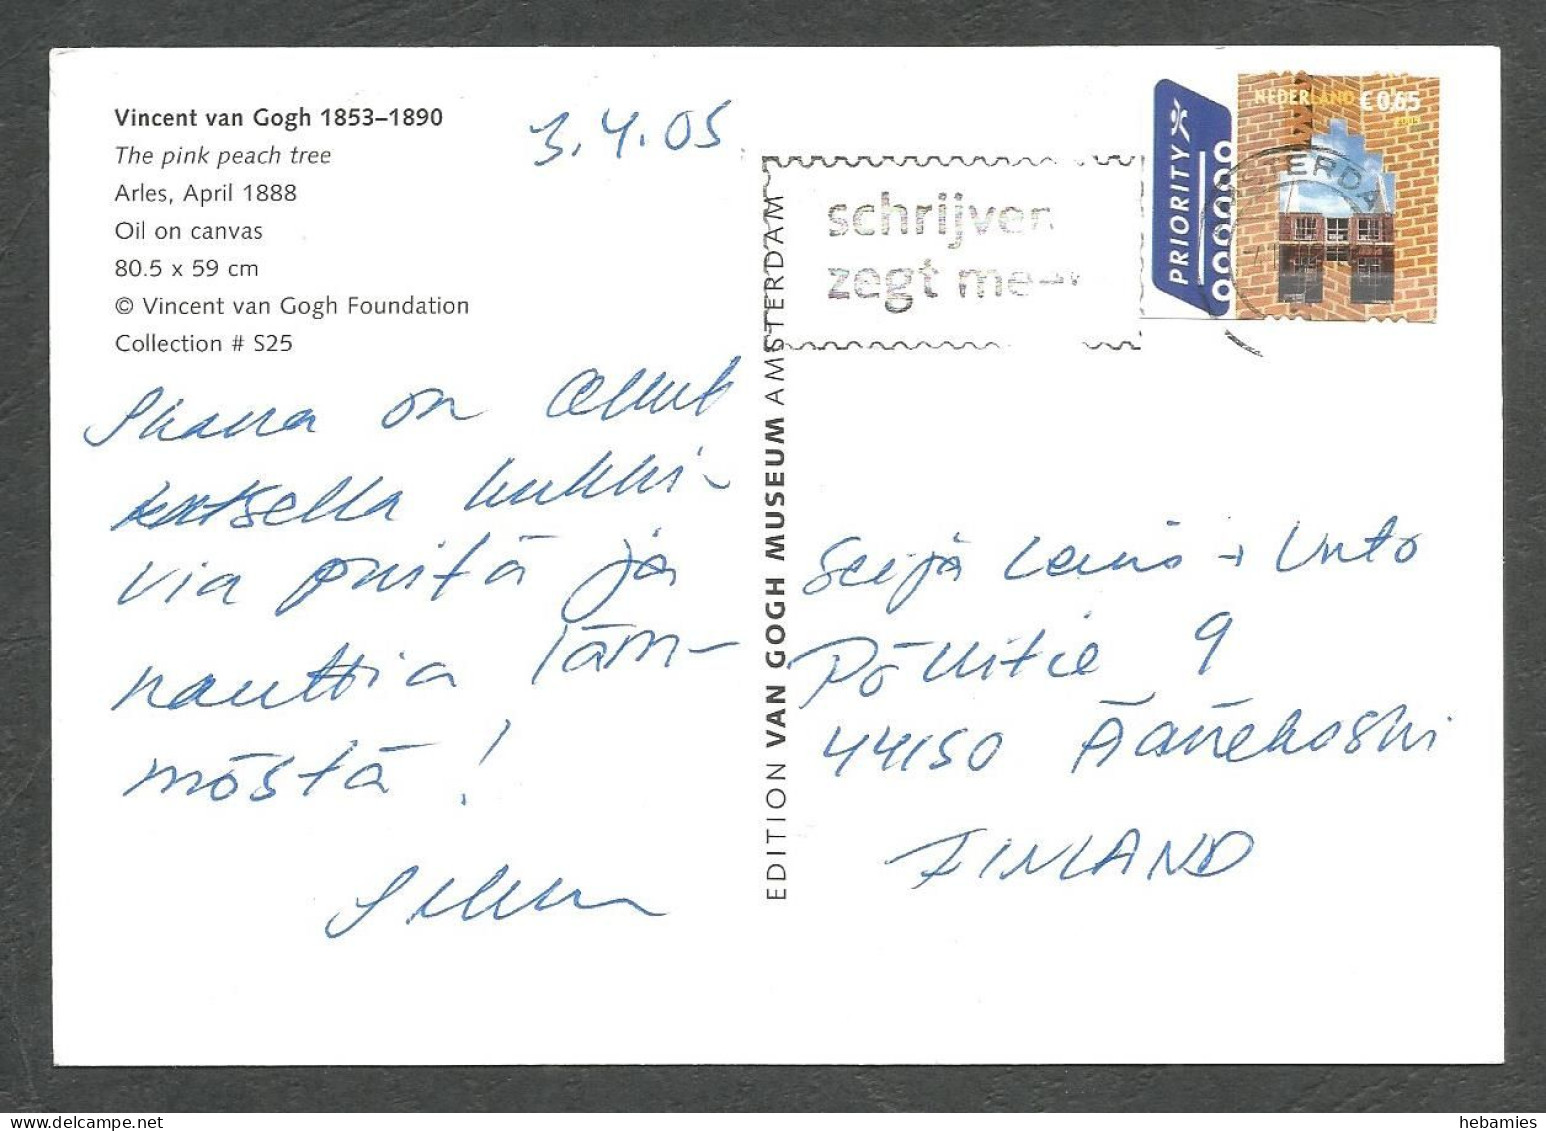 Vincent van Gogh 1853–1890
The pink peach tree
Arles, April 1888
Oil on canvas
80.5 x 59 cm
© Vincent van Gogh Foundation
Collection # S25
3.4.05
Ihana on ollut
katsella kukki-
via puita ja
nauttia läm-
möstä!
EDITION VAN GOGH MUSEUM AMSTERDAM
schrijven
zegt meer
PRIORITY
NEDERLAND € 0,65
2005
Seija + Unto
9
44150 Äänekoski
FINLAND
hebamies